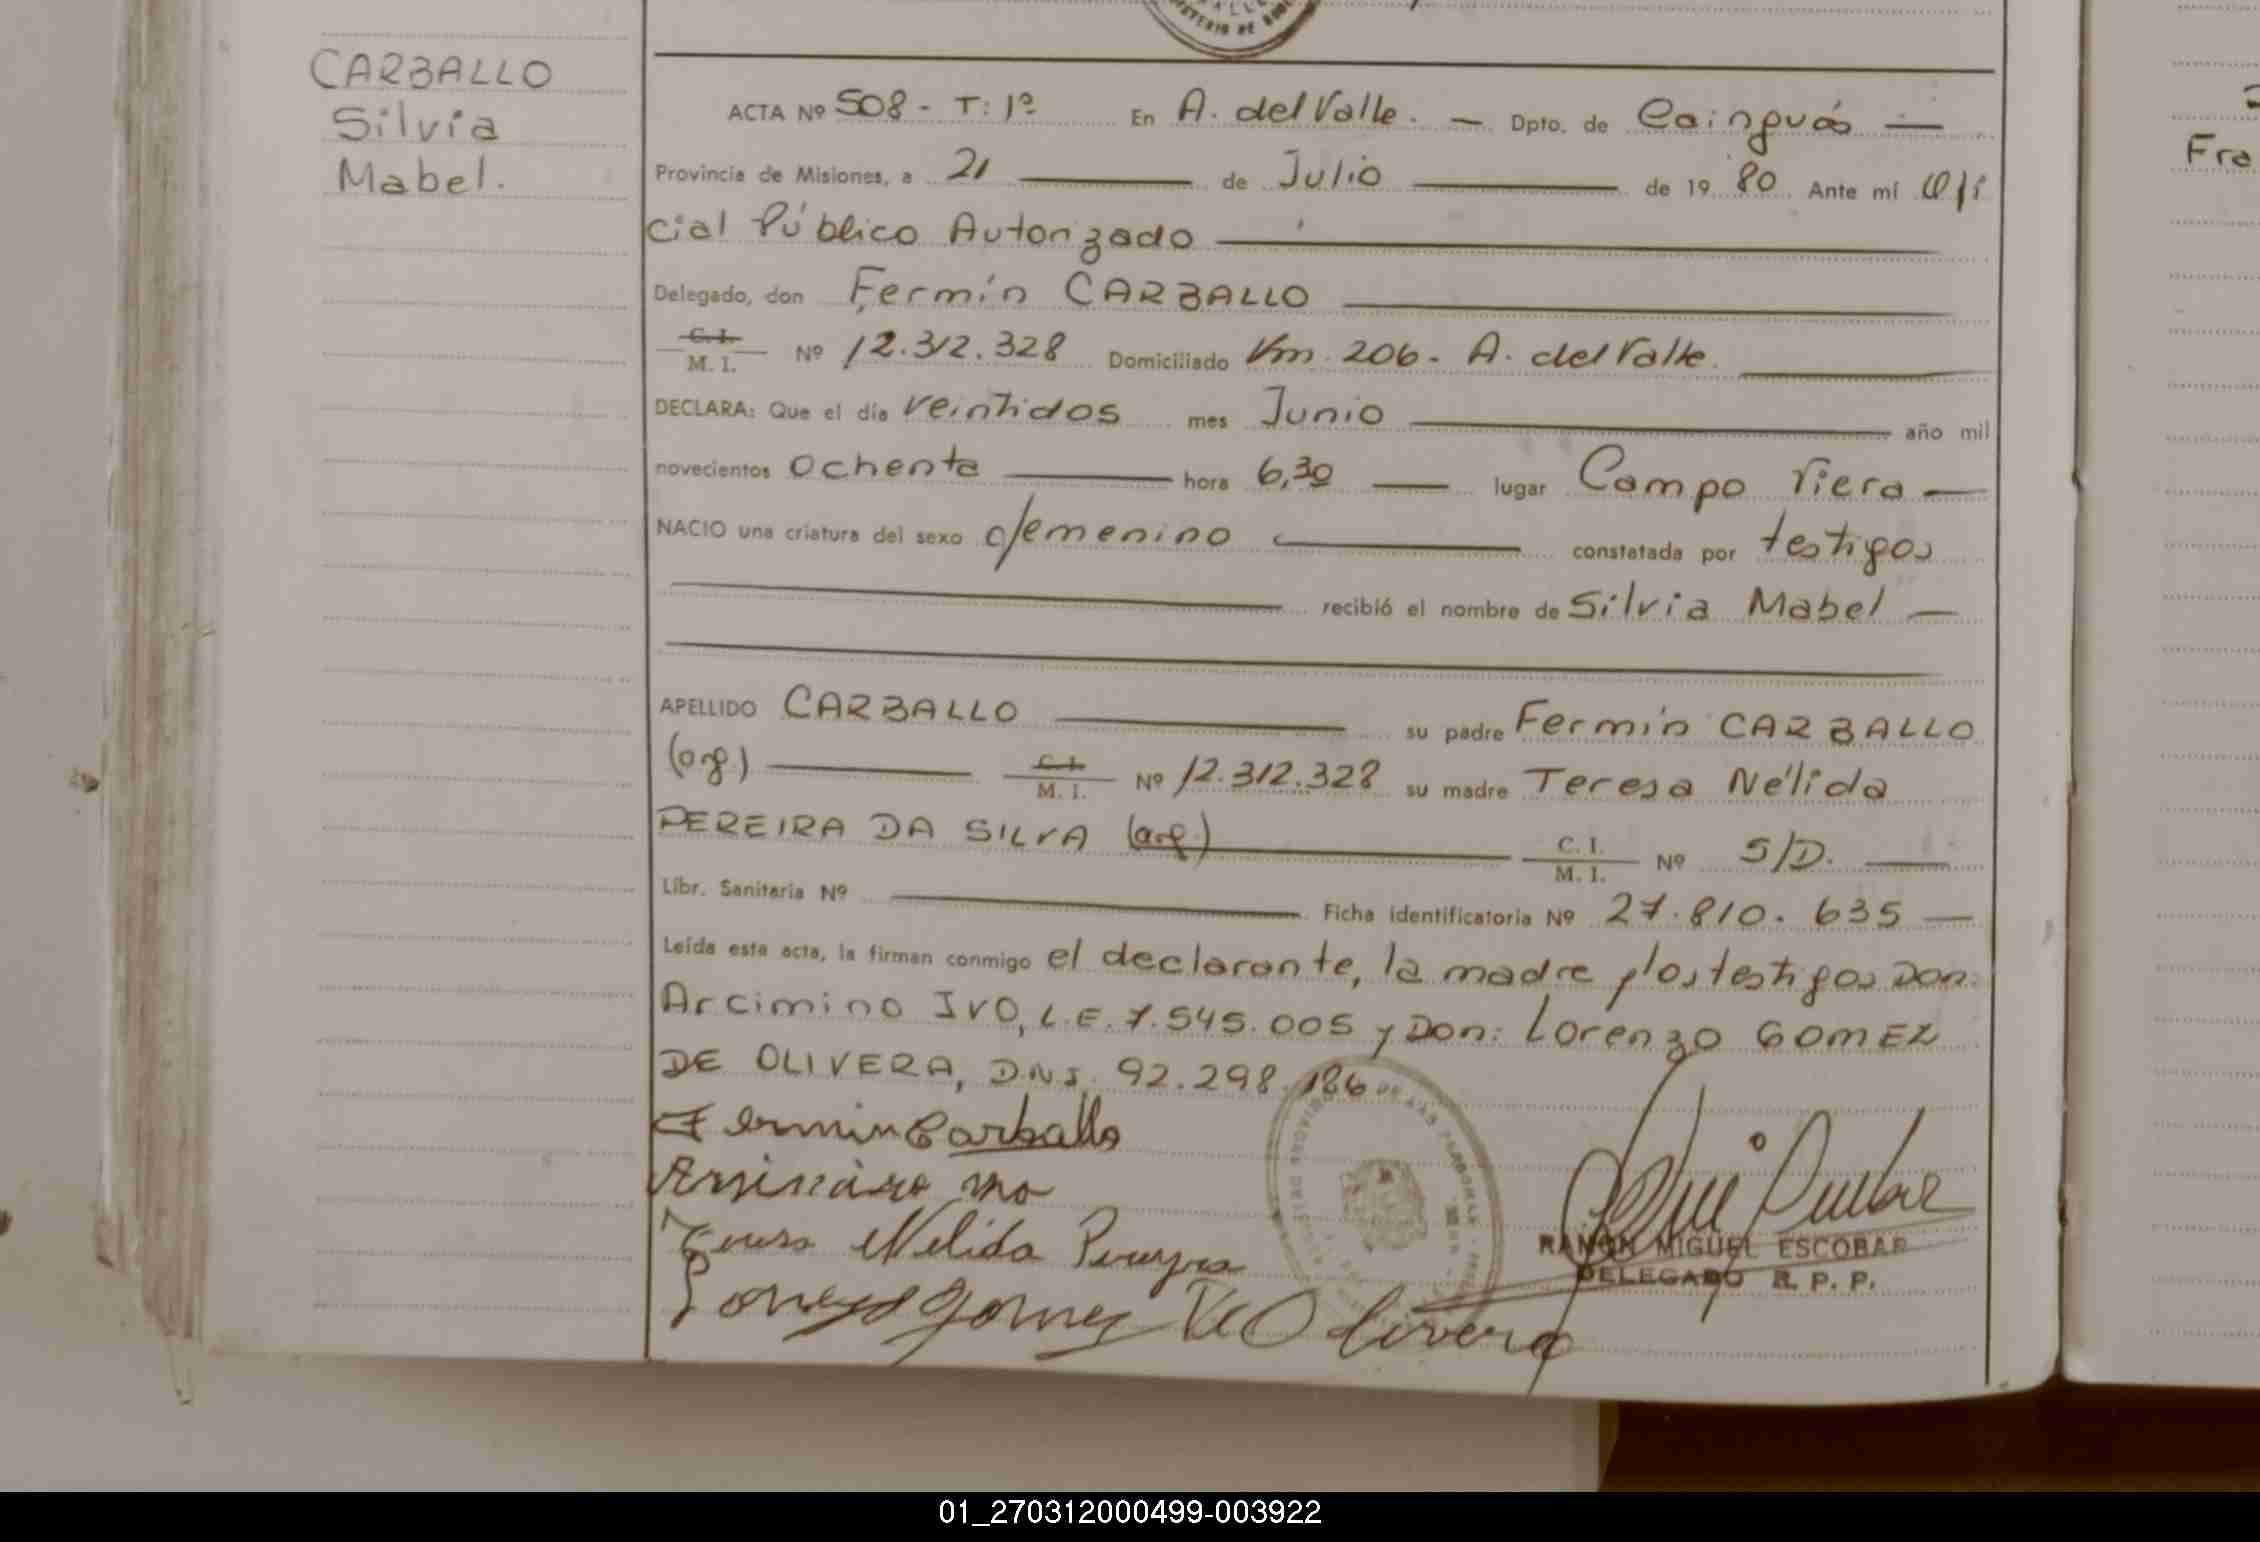 CARBALLO
Silvia
Mabel.
ACTA Nº 508 - T: 1º En A. del Valle. — Dpto. de Cainguás —
Provincia de Misiones, a 21 — de Julio — de 19 80 Ante mí Ofi
cial Público Autorizado —
Delegado, don Fermín CARBALLO —
C. I.
M. I. Nº 12.312.328 Domiciliado Km 206 - A. del Valle. —
DECLARA: Que el día veintidos mes Junio — año mil
novecientos ochenta — hora 6,30 — lugar Campo Viera —
NACIO una criatura del sexo femenino — constatada por testigos
— recibió el nombre de Silvia Mabel —
APELLIDO CARBALLO — su padre Fermín CARBALLO
(arg.) — C. I. M. I. Nº 12.312.328 su madre Teresa Nélida
PEREIRA DA SILVA (arg.) — C. I. M. I. Nº S/D. —
Libr. Sanitaria Nº — Ficha identificatoria Nº 27.810.635 —
Leída esta acta, la firman conmigo el declarante, la madre y los testigos Don:
Arcimino IVO, L.E. 7.545.005 y Don: Lorenzo GOMEZ
DE OLIVERA, D.N.I. 92.298.186
Fermin Carballo
Nelida Pereyra
Gomez De Olivera
RAMON MIGUEL ESCOBAR
DELEGADO R. P. P.
Fra
01_270312000499-003922